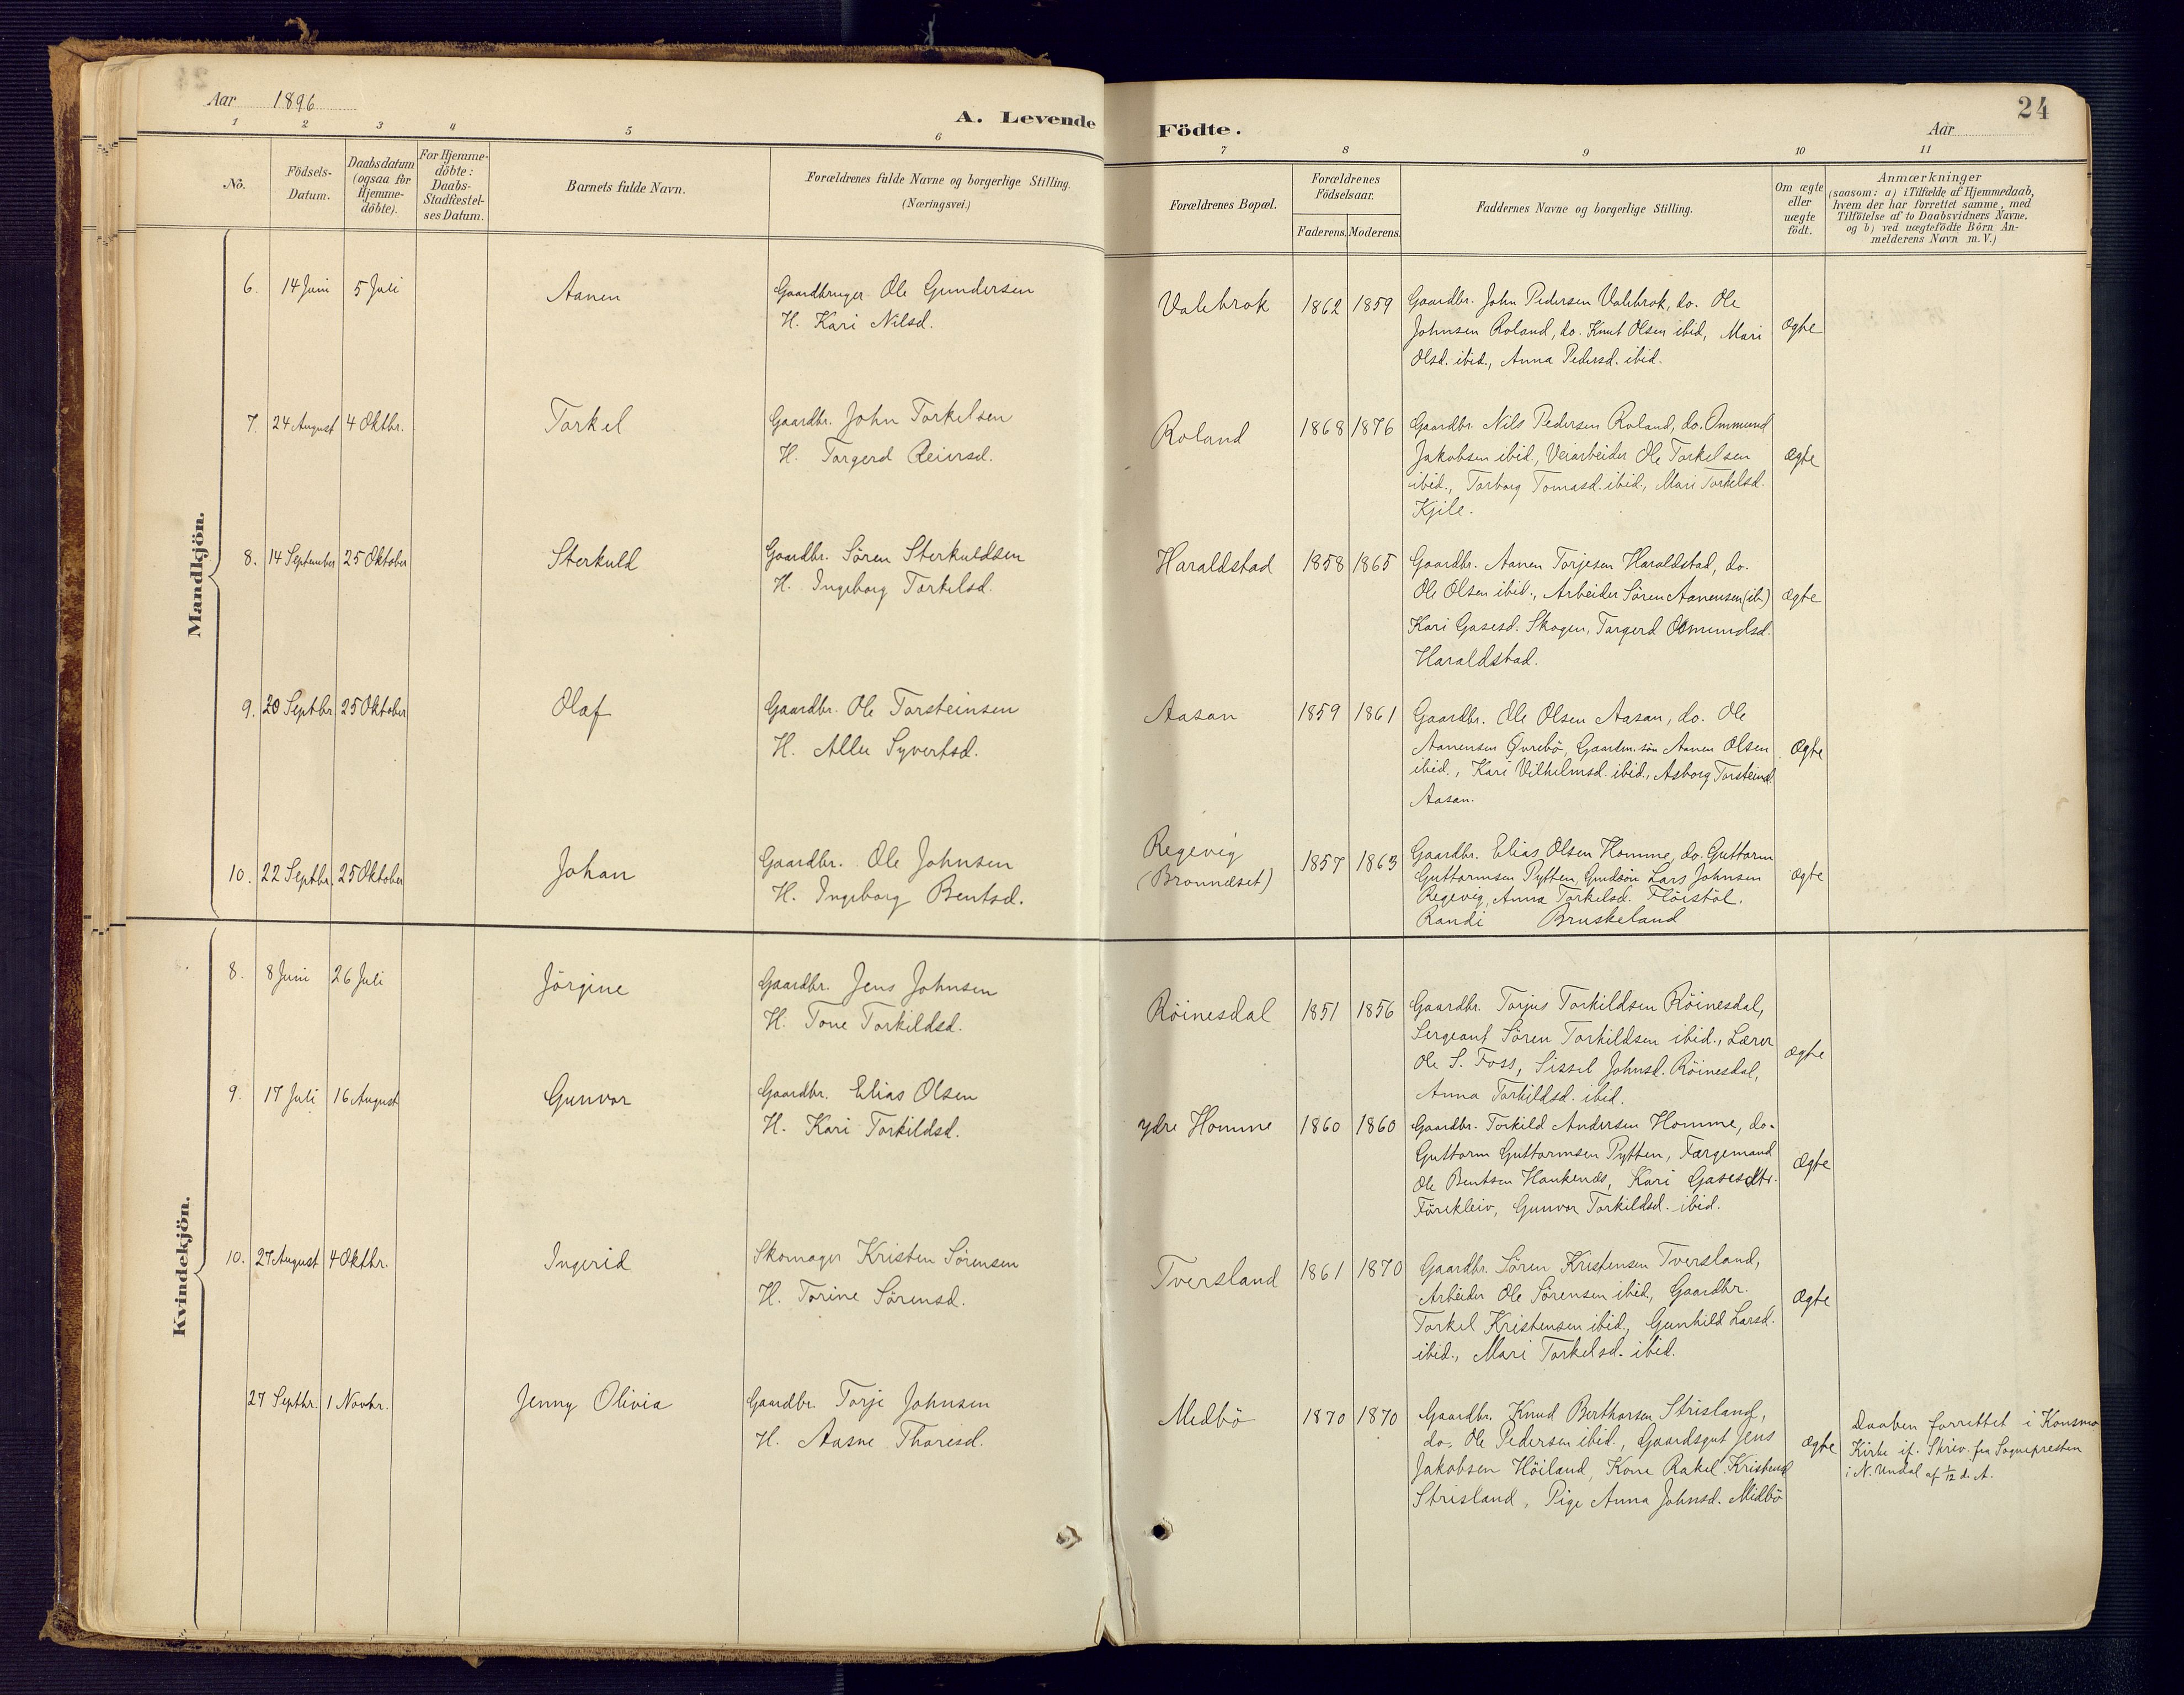 Aar 1896
A. Levende
1 2 3 4 5 6
No.
Födsels-
Datum.
Daabsdatum
(ogsaa for
Hjemme-
döbte).
For Hjemme-
döbte:
Daabs-
Stadfæstel-
ses Datum.
Barnets fulde Navn.
Forældrenes fulde Navne og borgerlige Stilling.
(Næringsvei.)
Mandkjön.
6. 14 Juni 5 Juli Aanen Gaardbruger Ole Gundersen
H. Kari Nilsd.
7. 24 August 4 Oktbr. Torkel Gaardbr. John Torkelsen
H. Torgerd Reiersd.
8. 14 September 25 Oktober Sterkuld Gaardbr. Sören Sterkuldsen
H. Ingeborg Torkelsd.
9. 20 Septbr 25 Oktober Olaf Gaardbr. Ole Torsteinsen
H. Allu Syvertsd.
10. 22 Septbr. 25 Oktober Johan Gaardbr. Ole Johnsen
H. Ingeborg Bentsd.
Kvindekjön.
8. 8 Juni 26 Juli Jörgine Gaardbr. Jens Johnsen
H. Tone Torkildsd.
9. 17 Juli 16 August Gunvor Gaardbr. Elias Olsen
H. Kari Torkildsd.
10. 27 August 4 Oktbr. Ingerid Skomager Kristen Sörensen
H. Torine Sörensd.
27 Septbr. 1 Novbr. Jenny Olivia Gaardbr. Torje Johnsen
H. Aasne Thoresd.
24
Födte.
Aar
7 8 9 10 11
Forældrenes Bopæl.
Forældrenes
Födselsaar.
Faderens. Moderens.
Faddernes Navne og borgerlige Stilling.
Om ægte
eller
uægte
födt.
Anmærkninger
(saasom: a) i Tilfælde af Hjemmedaab,
hvem der har forrettet samme, med
Tilföielse af to Daabsvidners Navne.
og b) ved uægtefödte Börn An-
melderens Navn m. V.)
Valebrok 1862 1859 Gaardbr. John Pedersen Valebrok, do. Ole
Johnsen Roland, do. Knut Olsen ibid, Mari
Olsd. ibid., Anna Pedersd. ibid.
Ægte
Roland 1868 1876 Gaardbr. Nils Pedersen Roland, do. Ommund
Jakobsen ibid., Veiarbeider Ole Torkelsen
ibid., Torborg Tomasd. ibid., Mari Torkelsd.
Kjile.
Ægte
Haraldstad 1858 1865 Gaardbr. Aanen Torjesen Haraldstad, do.
Ole Olsen ibid., Arbeider Sören Aanensen (ib.)
Kari Gasesd. Skogen, Torgerd Omundsd.
Haraldstad.
Ægte
Aasan 1859 1861 Gaardbr. Ole Olsen Aasan, do. Ole
Aanensen Övrebö, Gaardm.sön Aanen Olsen
ibid., Kari Vilhelmsd. ibid., Asborg Torsteinsd.
Aasan.
Ægte
Regevig
(Bronneset)
1857 1863 Gaardbr. Elias Olsen Homme, do. Guttorm
Guttormsen Pytten, Grdsön Lars Johnsen
Regevig, Anna Torkelsd. Flöistöl.
Randi Bruskeland
Ægte
Röinesdal 1851 1856 Gaardbr. Torjus Torkildsen Röinesdal,
Sergeant Sören Torkildsen ibid., Lærer
Ole S. Foss, Sissel Johnsd. Röinesdal,
Anna Torkildsd. ibid.
Ægte
ydre Homme 1860 1860 Gaardbr. Torkild Andersen Homme, do.
Guttorm Guttormsen Pytten, Færgemand
Ole Bentsen Haukenes, Kari Gasesdtr.
Förekleiv, Gunvor Torkildsd. ibid.
Ægte
Tversland 1861 1870 Gaardbr. Sören Kristensen Tversland,
Arbeider Ole Sörensen ibid., Gaardbr.
Torkel Kristensen ibid., Gunhild Larsd.
ibid., Mari Torkelsd. ibid.
Ægte
Medbö 1870 1870 Gaardbr. Knud Berthorsen Strisland,
do. Ole Pedersen ibid., Gaardsgut Jens
Jakobsen Höiland, Kone Rakel Kristensd.
Strisland, Pige Anna Johnsd. Midbö
Ægte
Daaben forrettet i Konsmo
Kirke if. Skriv. fra Sognepresten
i N. Undal af 1/12 d. A.